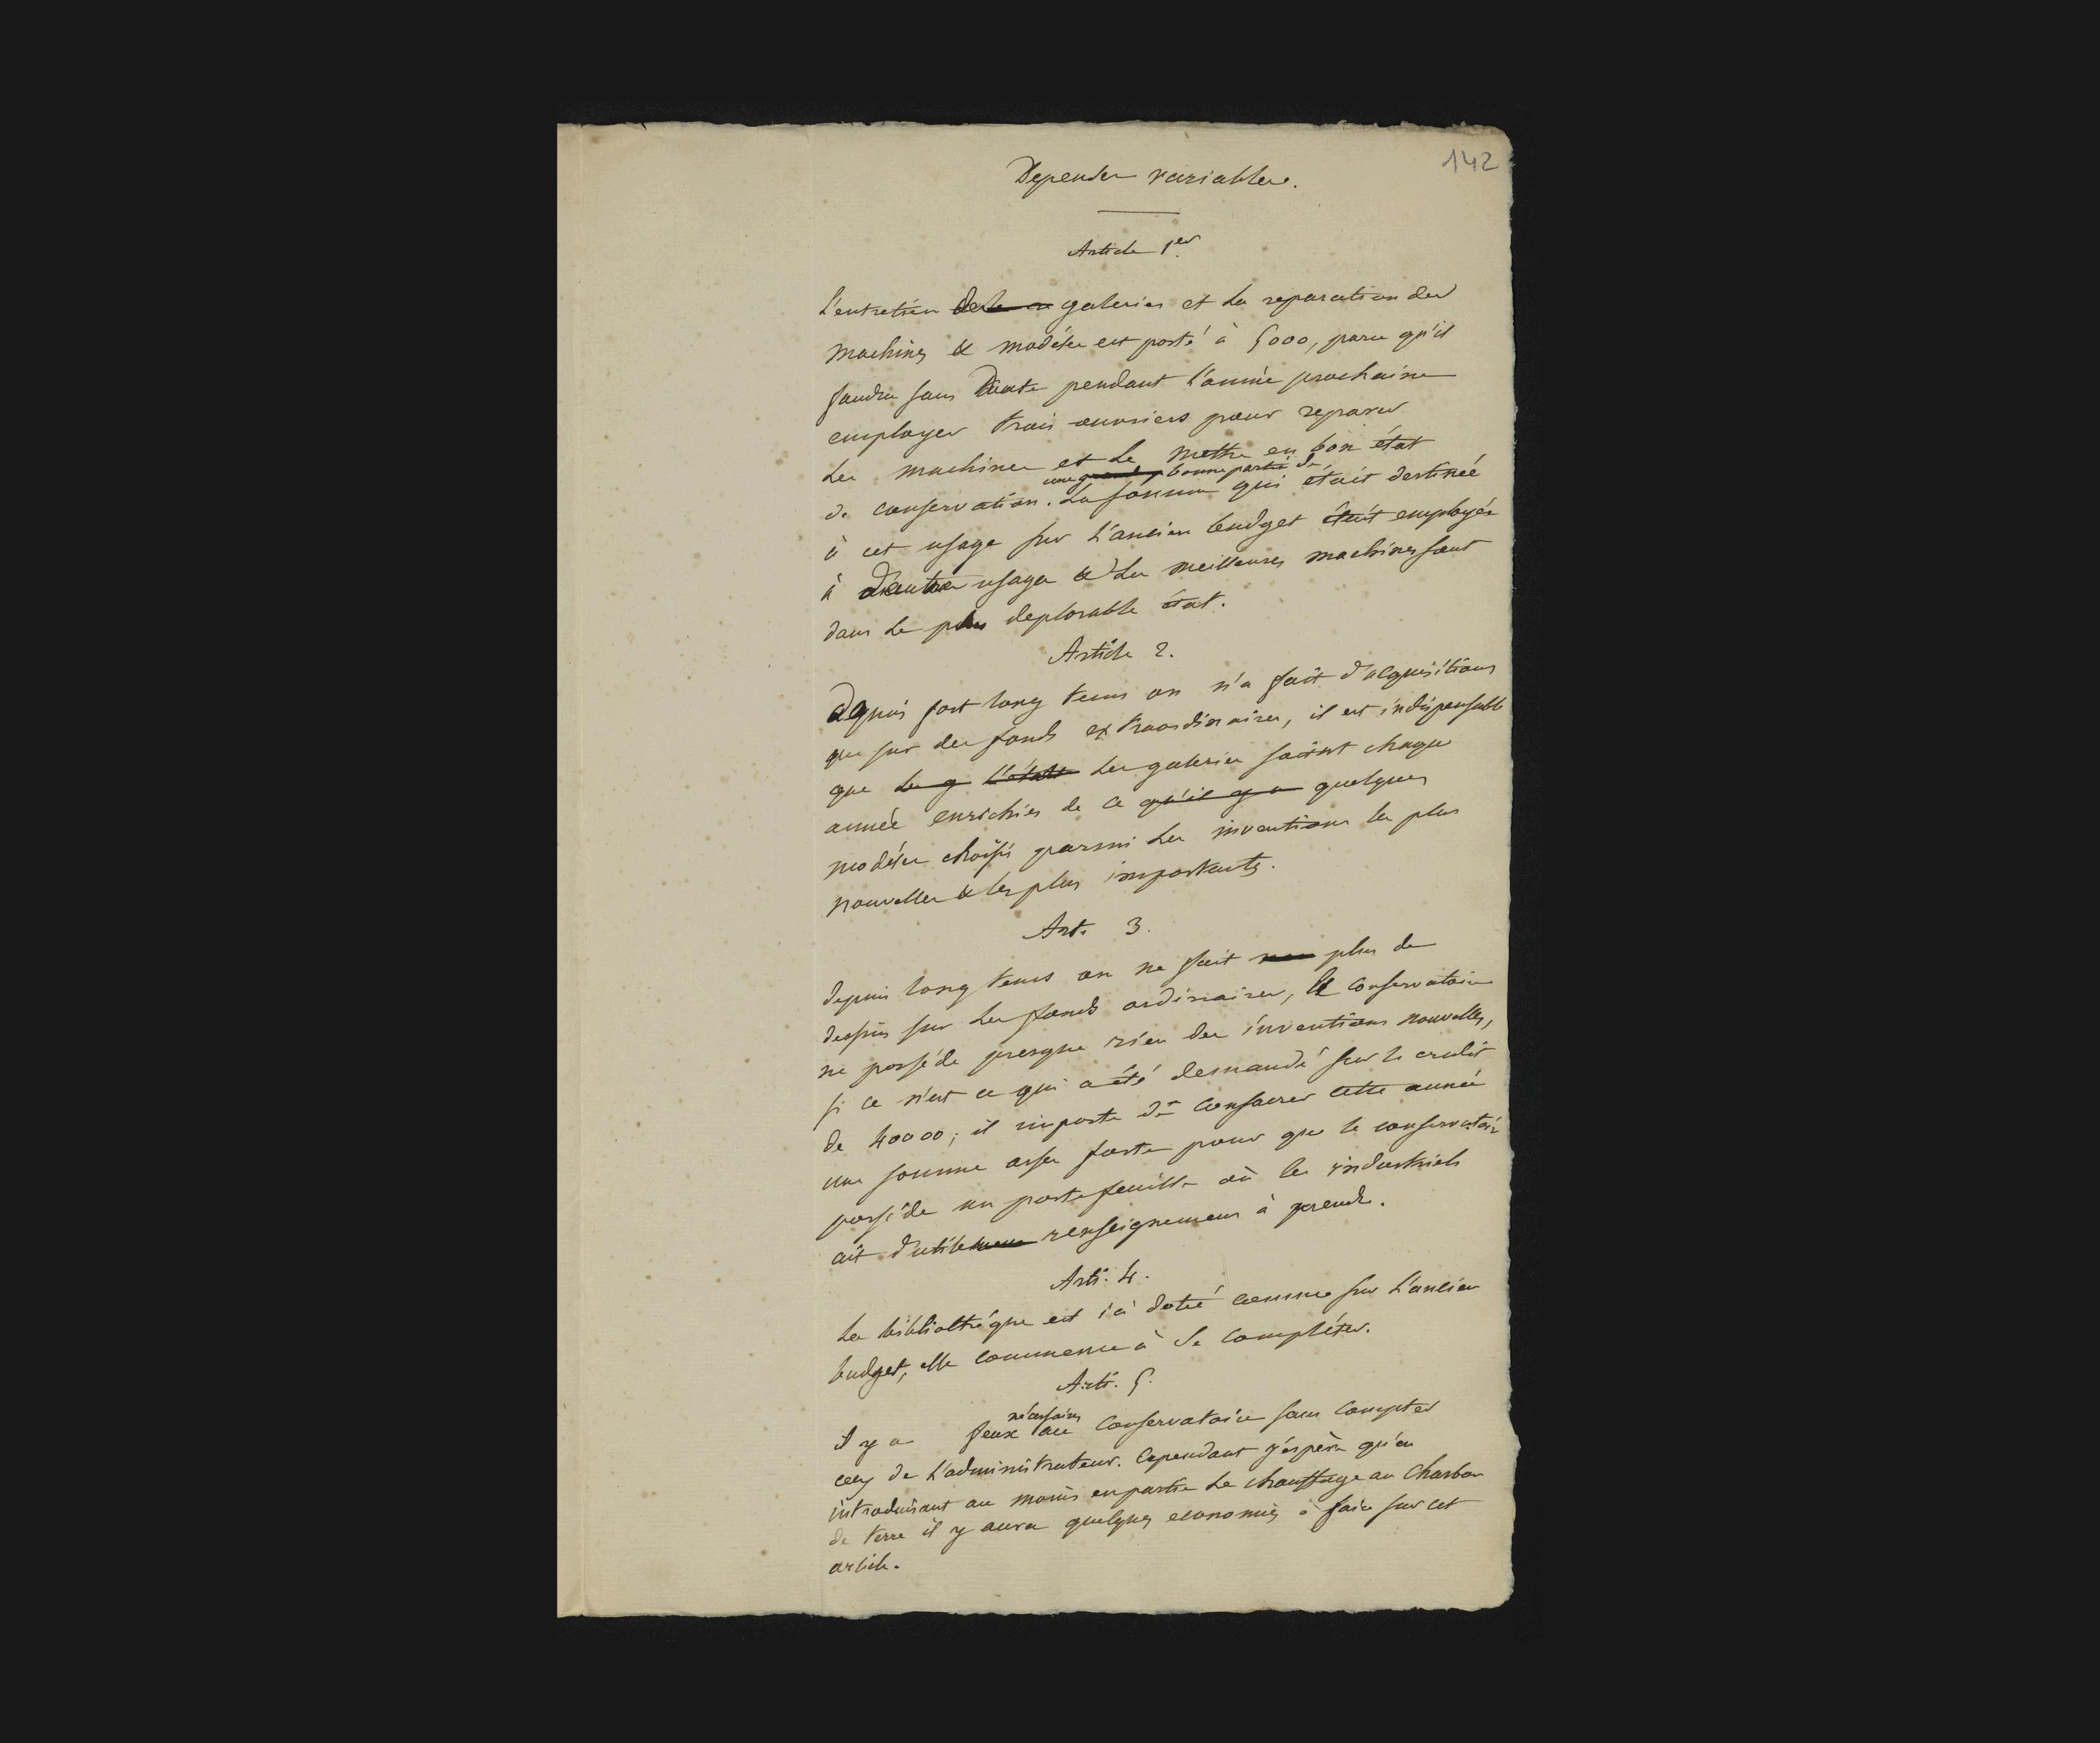 142
Depenses variables.
Article 1er
L'entretien des galeries et la reparation des
machines & modèles est porté à 5000, parce qu'il
faudra sans doute pendant l'année prochaine
employer trois ouvriers pour reparer
les machines et les mettre en bon état
une bonne partie de
de conservation. La somme qui était destinée
à cet usage sur l'ancien budget était employée
à d'autres usages & les meilleures machines sont
dans le plus deplorable état.
Article 2.
Depuis fort long tems on n'a fait d'acquisitions
que sur des fonds extraordinaires, il est indispensable
que les galeries soient chaque
année enrichies de ce qu'il y a quelques
modèles choisis parmi les inventions les plus
nouvelles & les plus importants.
Art. 3.
depuis long tems on ne fait plus de
dessins sur les fonds ordinaires, le conservatoire
ne possède presque rien des inventions nouvelles,
si ce n'est ce qui a été demandé sur le credit
de 40000; il importe de consacrer cette année
une somme assez forte pour que le conservatoire
possède un portefeuille où les industriels
ait d'utiles renseignemens à prendre.
Art. 4.
La bibliothéque est ici dotée comme sur l'ancien
budget, elle commence à se compléter.
Art. 5.
nécessaires
il y a feux au Conservatoire sans compter
ceux de l'administrateur. Cependant j'espère qu'en
introduisant au moins en partie le chauffage au charbon
de terre il y aura quelques economies à faire sur cet
article.